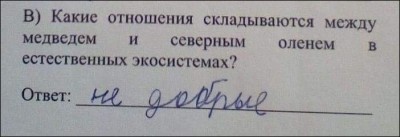 В) Какие отношения складываются между
медведем и северным оленем в
естественных экосистемах?
Ответ: не добрые